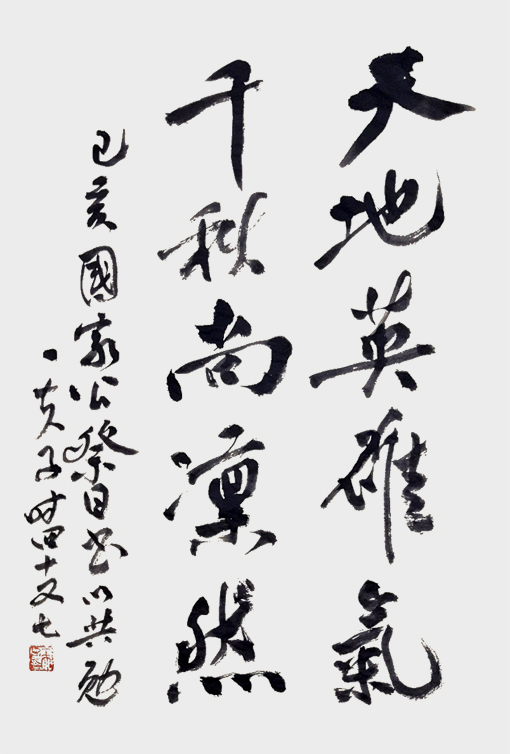 天地英雄氣
千秋尚凜然
己亥國家公祭日書以共勉
子時四十又七